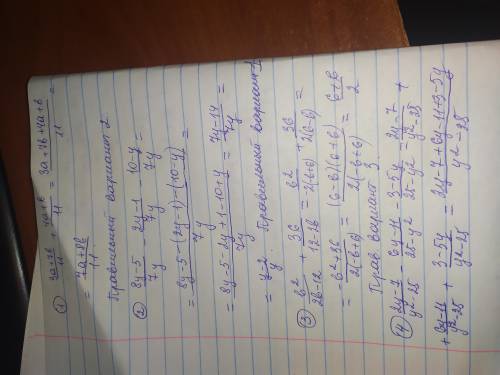 ① (3a+7b)/11 + (4a+b)/11 = (3a+7b+4a+b)/11 =
= (7a+8b)/11
Правильный вариант 2
② (8y-5)/7y - (2y-1)/7y - (10-y)/7y =
= (8y-5-(2y-1)-(10-y))/7y =
= (8y-5-2y+1-10+y)/7y = (7y-14)/7y =
= (y-2)/y Правильный вариант 1
③ b²/(2b-12) + 36/(12-2b) = b²/(2(b-6)) + 36/(2(6-b)) =
= (b²-36)/(2(b-6)) = ((b-6)(b+6))/(2(b-6)) = (b+6)/2
Прав вариант 3
④ (2y-7)/(y²-25) - (6y-11)/(25-y²) - (3-5y)/(25-y²) = (2y-7)/(y²-25) +
+ (6y-11)/(y²-25) + (3-5y)/(y²-25) = (2y-7+6y-11+3-5y)/(y²-25)